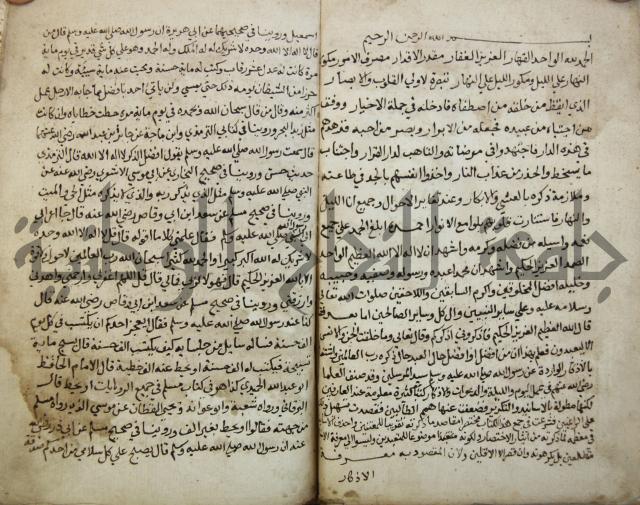 بسم الله الرحمن الرحيم
الحمد لله الواحد القهار العزيز الغفار مقدر الاقدار مصرف الامور مكور
النهار على الليل ومكور الليل على النهار تبصرة لاولي القلوب والابصار
الذي ايقظ من خلقه من اصطفاه فادخله في جملة الاخيار ووفق
من اجتباه من عبيده فجعله من الابرار وبصر من احبه فزهدهم
في هذه الدار فاجتهدوا في مرضاته والتاهب لدار القرار واجتناب
ما يسخطه والحذر من عذاب النار واخذوا انفسهم بالجد في طاعته
وملازمة ذكره بالعشي والابكار وعند تغاير الاحوال وجميع اناء الليل
والنهار فاستنارت قلوبهم بلوامع الانوار احمده ابلغ الحمد على جميع
نعمه واسيله من فضله وكرمه واشهد ان لا اله الا الله العظيم الواحد
الصمد العزيز الحكيم واشهد ان محمدا عبده ورسوله وصفيه وحبيبه
وخليله افضل المخلوقين واكرم السابقين واللاحقين صلوات الله
وسلامه عليه وعلى ساير النبيين وال كل وساير الصالحين اما بعد فقد
قال الله العظيم العزيز الحكيم فاذكروني اذكركم وقال تعالى وما خلقت الجن والانس
الا ليعبدون فعلم بهذا ان من افضل حال العبد حال ذكره رب العالمين
بالاذكار الواردة عن رسول الله صلى الله عليه وسلم سيد المرسلين وقد صنف العلما
رضي الله عنهم في عمل اليوم والليلة والدعوات والاذكار كتبا كثيرة معلومة عند العارفين
لكنها مطولة بالاسانيد والتكرير فضعفت عنها همم الطالبين فقصدت تسهيل
على الراغبين فشرعت في جمع هذا الكتاب مختصرا مقاصد ما ذكرته تقريبا للمعتنين
الاذكار
اسمعيل وروينا في صحيحيهما عن ابي هريرة ان رسول الله صلى الله عليه وسلم قال من
قال لا اله الا الله وحده لا شريك له له الملك وله الحمد وهو على كل شي قدير في يوم ماية
مرة كانت له عدل عشر رقاب وكتبت له ماية حسنة ومحيت عنه ماية سيئة وكانت له
حرزا من الشيطان يومه ذلك حتى يمسي ولم يات احد بافضل مما جا به الا رجل عمل
اكثر منه وقال من قال سبحان الله وبحمده في يوم ماية مرة حطت خطاياه وان كانت
مثل زبد البحر وروينا في كتابي الترمذي وابن ماجة عن جابر بن عبد الله رضي الله عنهما
قال سمعت رسول الله صلى الله عليه وسلم يقول افضل الذكر لا اله الا الله قال الترمذي
حديث حسن وروينا في صحيح البخاري عن ابي موسى الاشعري رضي الله عنه عن
النبي صلى الله عليه وسلم مثل الذي يذكر ربه والذي لا يذكره مثل الحي والميت
وروينا في صحيح مسلم عن سعد بن ابي وقاص رضي الله عنه قال جا اعرابي الى
صلى الله عليه وسلم فقال علمني كلاما اقوله قال قل لا اله الا الله وحده
لا شريك له الله اكبر كبيرا والحمد لله كثيرا سبحان الله رب العالمين لا حول
العزيز الحكيم قال فهولا لربي فمالي قال قل اللهم اغفر لي وارحمني واهدني
وارزقني وروينا في صحيح مسلم عن سعد بن ابي وقاص رضي الله عنه قال
كنا عند رسول الله صلى الله عليه وسلم فقال ايعجز احدكم ان يكتسب في كل يوم
الف حسنة فساله سايل من جلسايه كيف يكتسب الف حسنة قال يسبح ماية
تسبيحة فيكتب له الف حسنة او يحط عنه الف خطية قال الامام الحافظ
ابو عبد الله الحميدي كذا هو في كتاب مسلم في جميع الروايات او يحط قال
البرقاني ورواه شعبة وابو عوانة ويحيى القطان عن موسى الذي رواه مسلم
من جهته فقالوا ويحط بغير الف وروينا في صحيح مسلم عن ابي ذر رضي
عنه ان رسول الله صلى الله عليه وسلم قال يصبح على كل سلامى من احدكم صدقة
جامعة النجاح الوطنية